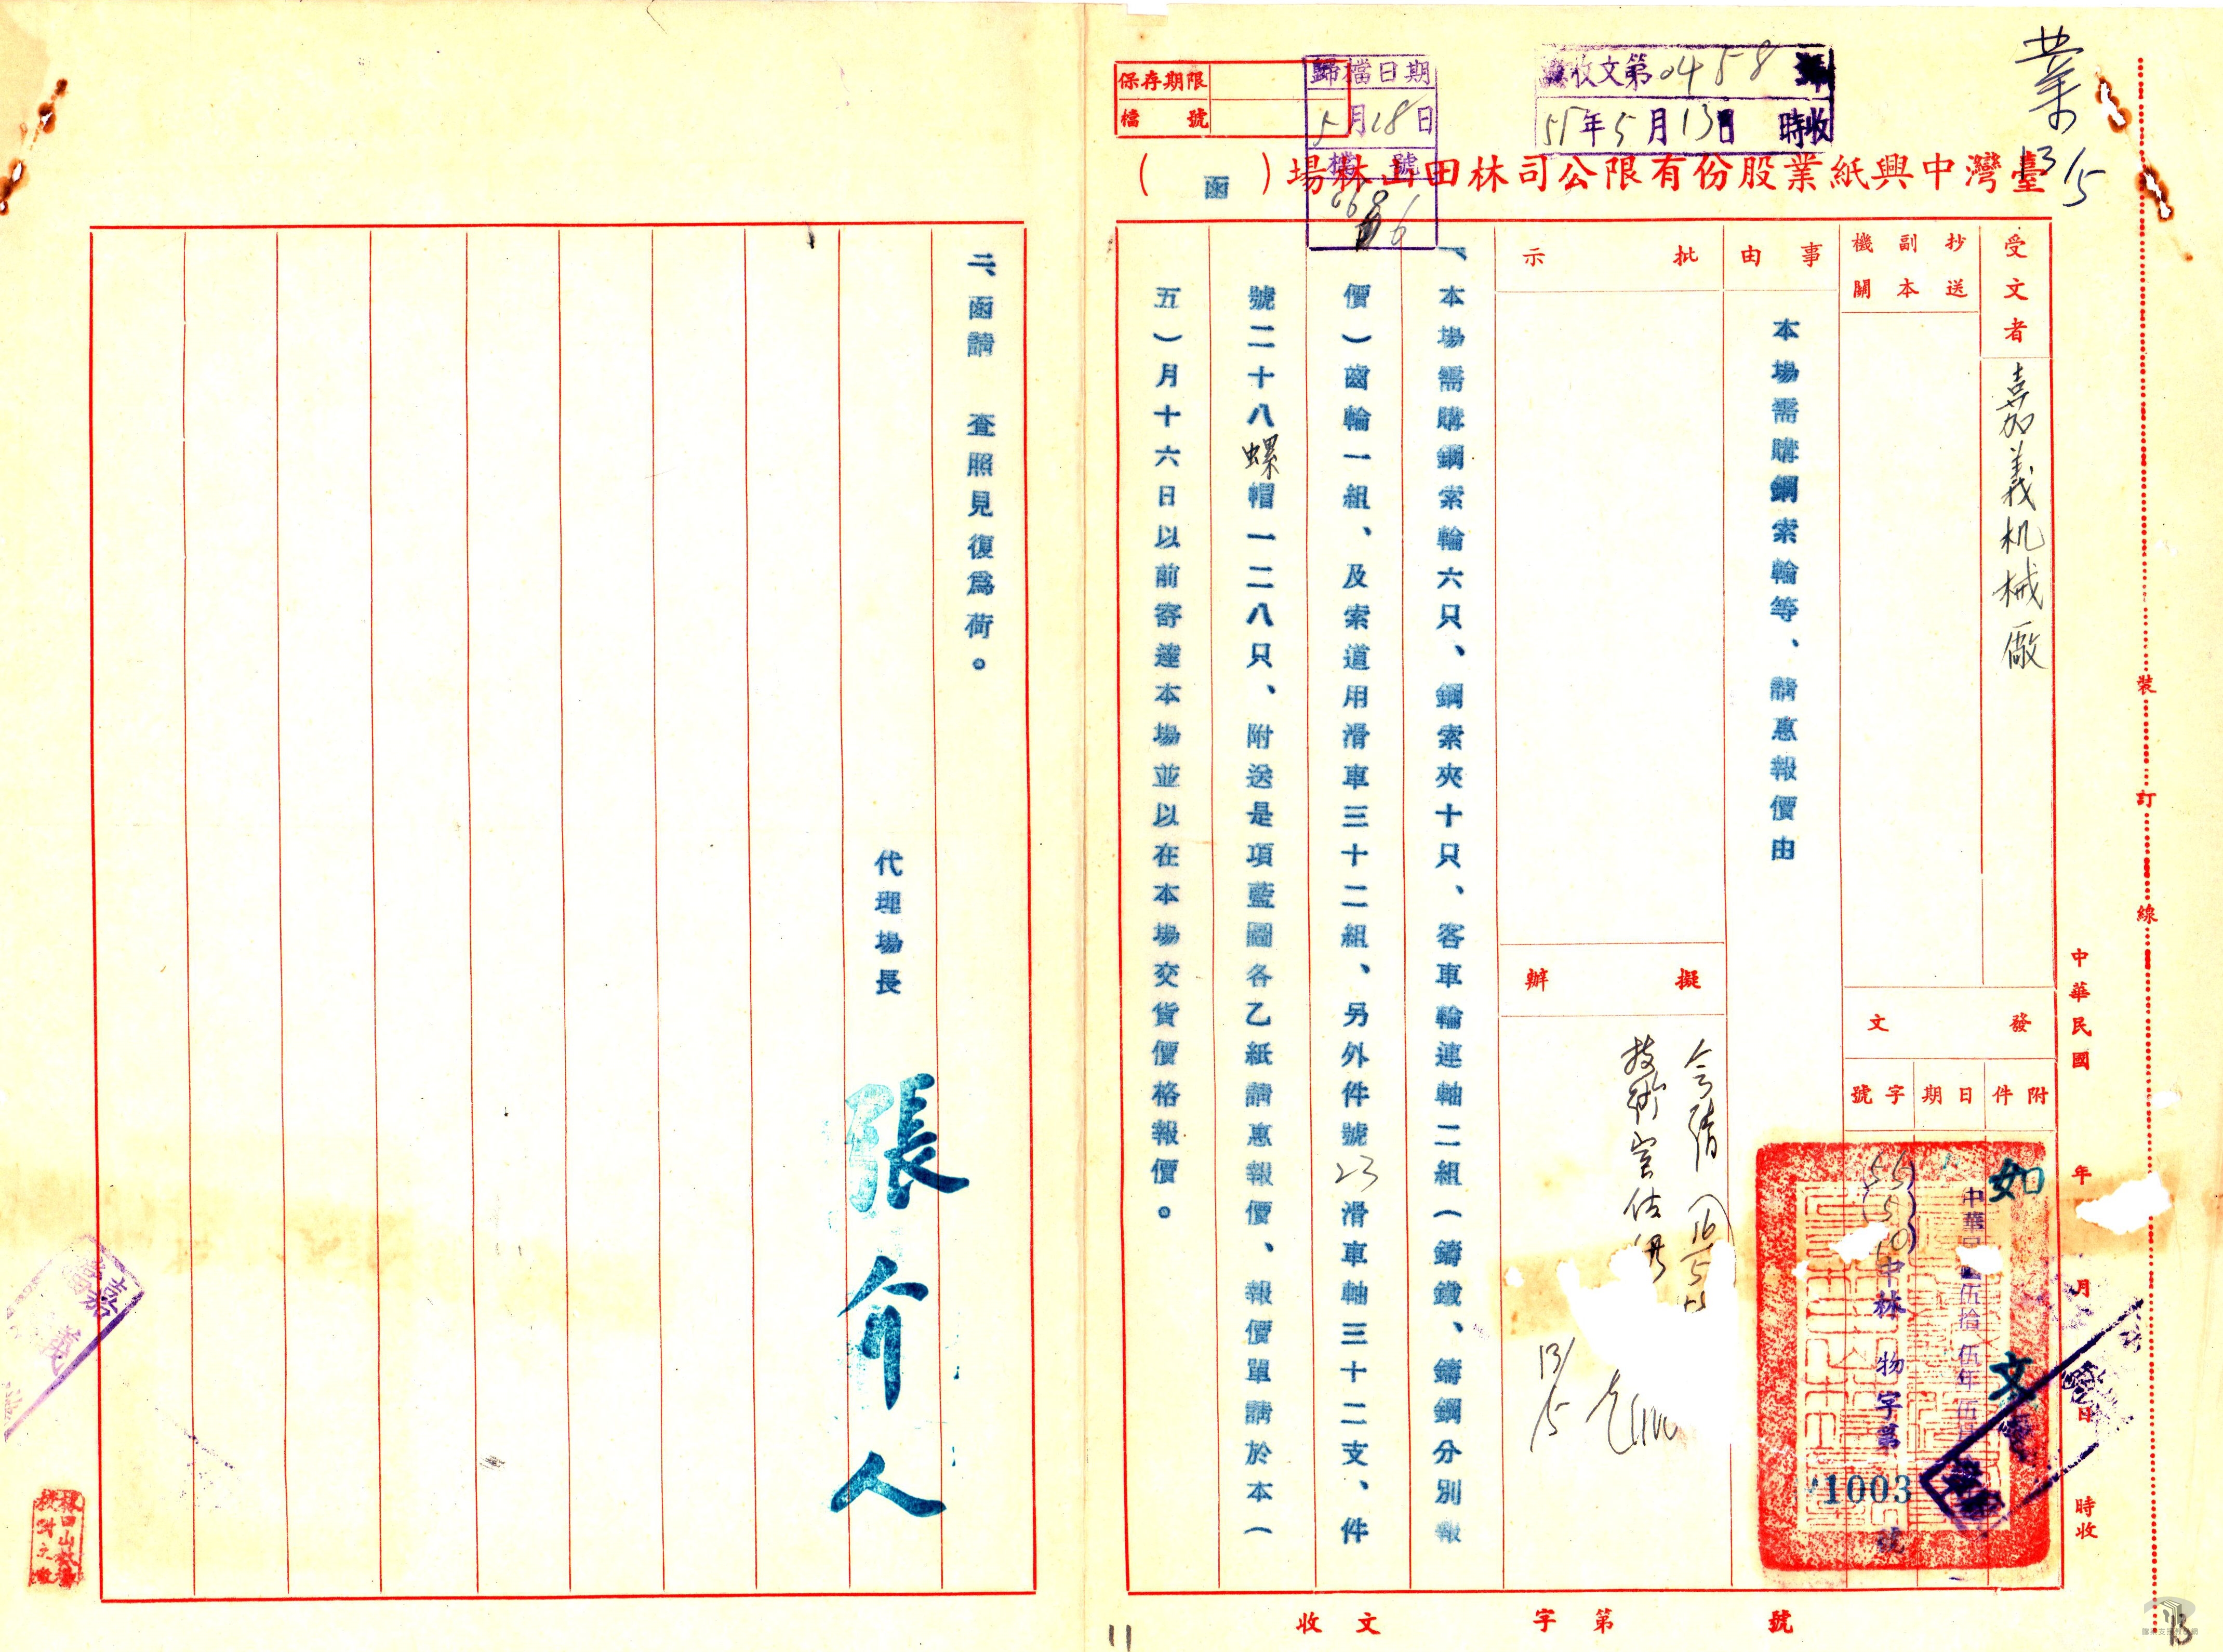 業
13/5
收文第0458號
55年5月13日 時收
歸檔日期
5月18日
檔號
保存期限
檔號
臺灣中興紙業股份有限公司林田山林場（函）
受文者
嘉義机械廠
抄送副本機關
事由
本場需購鋼索輪等、請惠報價由
批示
擬辦
13/5
發文
附件
日期
字號
如文
中華民國伍拾伍年伍月
(55)(5)(10)中林物字第
1003
號
中華民國 年 月 日 時收
裝訂線
一、本場需購鋼索輪六只、鋼索夾十只、客車輪連軸二組（鑄鐵、鑄鋼分別報
價）齒輪一組、及索道用滑車三十二組、另外件號23滑車軸三十二支、件
號二十八螺帽一二八只、附送是項藍圖各乙紙請惠報價、報價單請於本（
五）月十六日以前寄達本場並以在本場交貨價格報價。
二、函請 查照見復為荷。
代理場長
張介人
嘉義
收文 字第 號
11
13